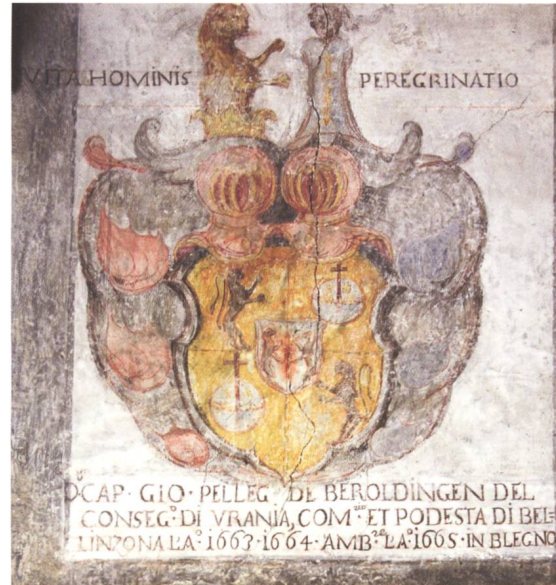 VITA HOMINIS PEREGRINATIO
CAP · GIO · PELLEG · DE BEROLDINGEN DEL
CONSEG.º DI VRANIA, COM.ʳⁱᵒ ET PODESTA DI BEL=
LINZONA L'A.º 1663 · 1664 · AMB.ʳᵉ L'A.º 1665 · IN BLEGNO